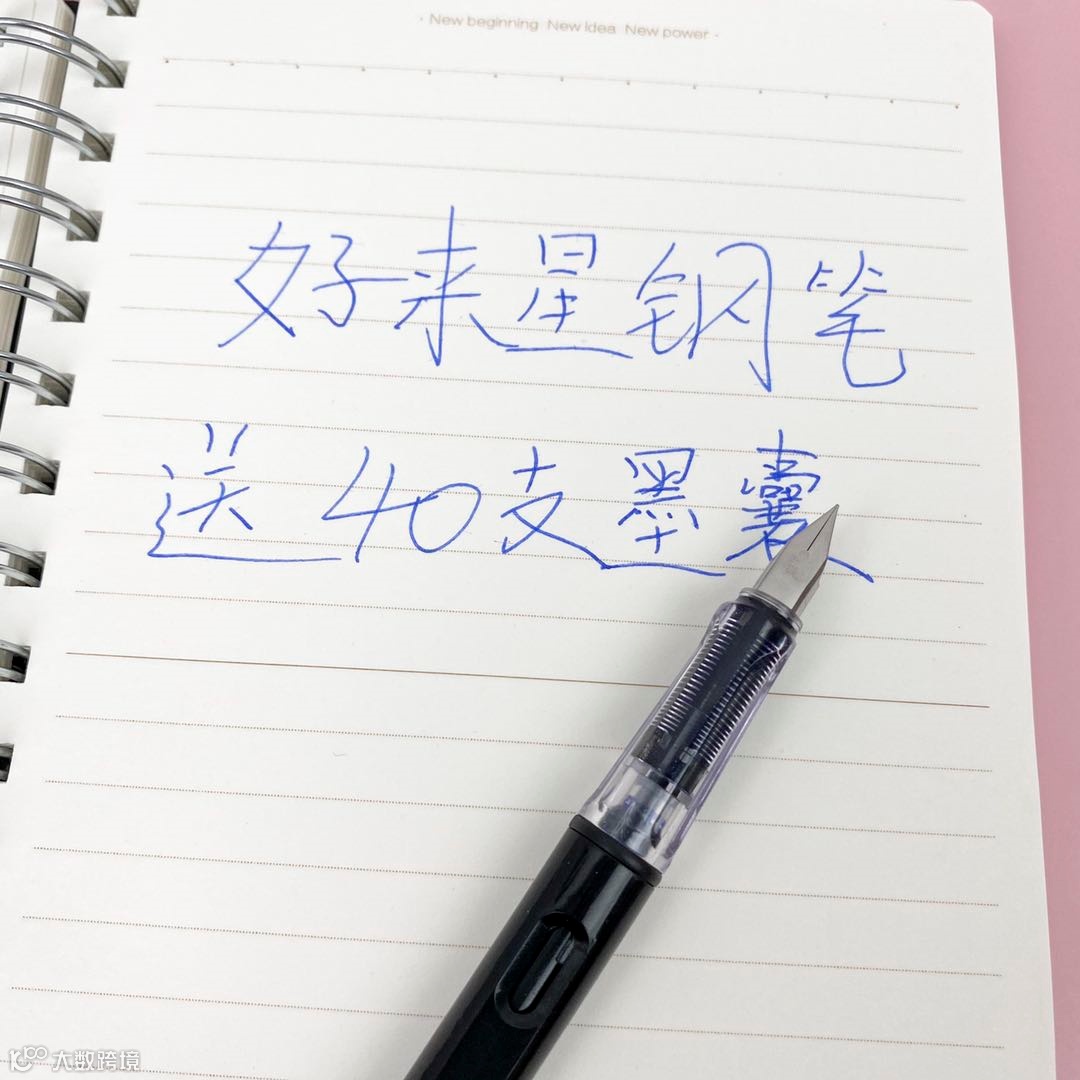 · New beginning New Idea New power ·
好来星钢笔
送40支墨囊
大数跨境